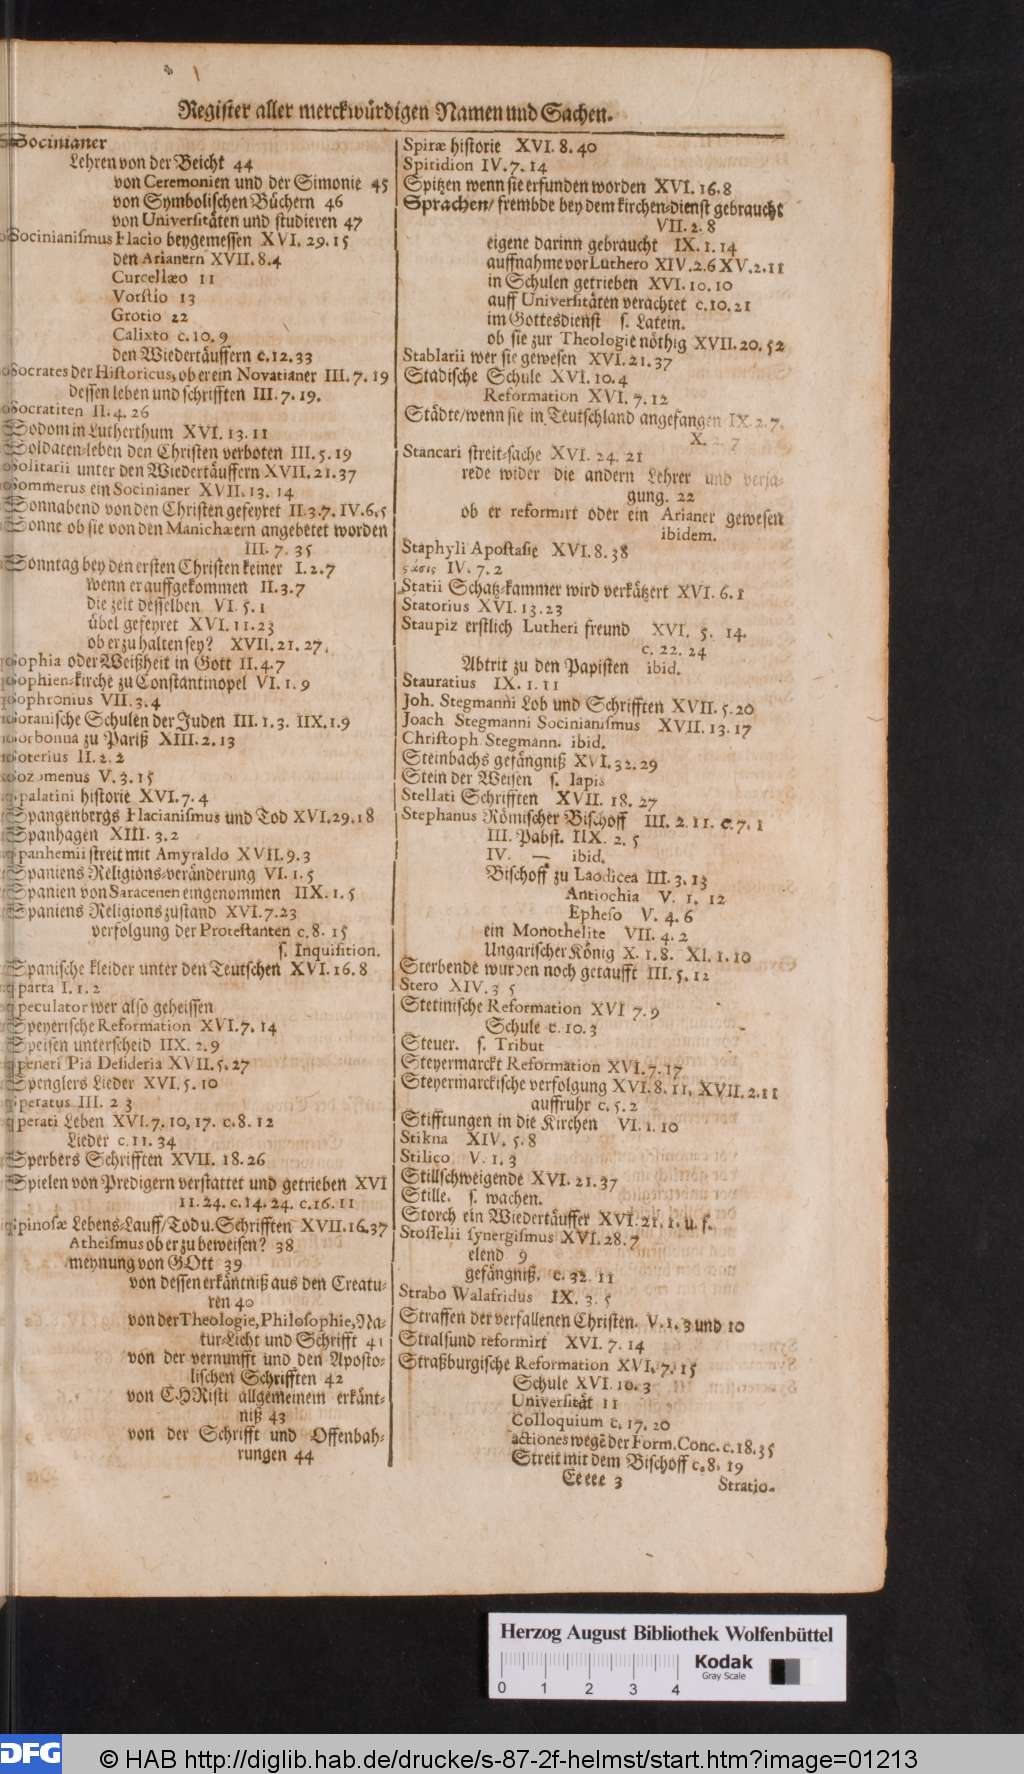 Register aller merckwürdigen Namen und Sachen.
Socinianer
Lehren von der Beicht 44
von Ceremonien und der Simonie 45
von Symbolischen Büchern 46
von Universitäten und studieren 47
Socinianismus Flacio beygemessen XVI. 29. 15
den Arianern XVII. 8. 4
Curcellæo 11
Vorstio 13
Grotio 22
Calixto c. 10. 9
den Wiedertäuffern c. 12. 33
Socrates der Historicus, ob er ein Novatianer III. 7. 19
dessen leben und schrifften III. 7. 19.
Socratiten II. 4. 26
Sodom in Lutherthum XVI. 13. 11
Soldaten-leben den Christen verboten III. 5. 19
Solitarii unter den Wiedertäuffern XVII. 21. 37
Sommerus ein Socinianer XVII. 13. 14
Sonnabend von den Christen gefeyret II. 3. 7. IV. 6. 5
Sonne ob sie von den Manichæern angebetet worden
III. 7. 35
Sonntag bey den ersten Christen keiner I. 2. 7
wenn er auffgekommen II. 3. 7
die zeit desselben VI. 5. 1
übel gefeyret XVI. 11. 23
ob er zu halten sey? XVII. 21. 27.
Sophia oder Weißheit in Gott II. 4. 7
Sophien-kirche zu Constantinopel VI. 1. 9
Sophronius VII. 3. 4
Soranische Schulen der Juden III. 1. 3. IIX. 1. 9
Sorbonna zu Pariß XIII. 2. 13
Soterius II. 2. 2
Sozomenus V. 3. 15
Spalatini historie XVI. 7. 4
Spangenbergs Flacianismus und Tod XVI. 29. 18
Spanhagen XIII. 3. 2
Spanhemii streit mit Amyraldo XVII. 9. 3
Spaniens Religions-veränderung VI. 1. 5
Spanien von Saracenen eingenommen IIX. 1. 5
Spaniens Religions zustand XVI. 7. 23
verfolgung der Protestanten c. 8. 15
s. Inquisition.
Spanische kleider unter den Teutschen XVI. 16. 8
Sparta I. 1. 2
Speculator wer also geheissen
Speyerische Reformation XVI. 7. 14
Speisen unterscheid IIX. 2. 9
Speneri Pia Desideria XVII. 5. 27
Spenglers Lieder XVI. 5. 10
Speratus III. 2 3
Sperati Leben XVI. 7. 10, 17. c. 8. 12
Lieder c. 11. 34
Sperbers Schrifften XVII. 18. 26
Spielen von Predigern verstattet und getrieben XVI
11. 24. c. 14. 24. c. 16. 11
Spinosæ Lebens-Lauff/ Tod u. Schrifften XVII. 16. 37
Atheismus ob er zu beweisen? 38
meynung von GOtt 39
von dessen erkäntniß aus den Creatu-
ren 40
von der Theologie, Philosophie, Na-
tur-Licht und Schrifft 41
von der vernunfft und den Aposto-
lischen Schrifften 42
von CHRisti allgemeinem erkänt-
niß 43
von der Schrifft und Offenbah-
rungen 44
Spiræ historie XVI. 8. 40
Spiridion IV. 7. 14
Spitzen wenn sie erfunden worden XVI. 16. 8
Sprachen/ frembde bey dem kirchen-dienst gebraucht
VII. 2. 8
eigene darinn gebraucht IX. 1. 14
auffnahme vor Luthero XIV. 2. 6 XV. 2. 11
in Schulen getrieben XVI. 10. 10
auff Universitäten verachtet c. 10. 21
im Gottesdienst s. Latein.
ob sie zur Theologie nöthig XVII. 20. 52
Stablarii wer sie gewesen XVI. 21. 37
Stadische Schule XVI. 10. 4
Reformation XVI. 7. 12
Städte/ wenn sie in Teutschland angefangen IX. 2. 7.
X. 2. 7
Stancari streit-sache XVI. 24. 21
rede wider die andern Lehrer und verja-
gung. 22
ob er reformirt oder ein Arianer gewesen
ibidem.
Staphyli Apostasie XVI. 8. 38
ςάσις IV. 7. 2
Statii Schatz-kammer wird verkätzert XVI. 6. 1
Statorius XVI. 13. 23
Staupiz erstlich Lutheri freund XVI. 5. 14.
c. 22. 24
Abtrit zu den Papisten ibid.
Stauratius IX. 1. 11
Joh. Stegmanni Lob und Schrifften XVII. 5. 20
Joach Stegmanni Socinianismus XVII. 13. 17
Christoph Stegmann. ibid.
Steinbachs gefängniß XVI. 32. 29
Stein der Weisen s. lapis
Stellati Schrifften XVII. 18. 27
Stephanus Römischer Bischoff III. 2. 11. c. 7. 1
III. Pabst. IIX. 2. 5
IV. — ibid.
Bischoff zu Laodicea III. 3. 13
Antiochia V. 1. 12
Epheso V. 4. 6
ein Monothelite VII. 4. 2
Ungarischer König X. 1. 8. XI. 1. 10
Sterbende wurden noch getaufft III. 5. 12
Stero XIV. 3 5
Stetinische Reformation XVI 7. 9
Schule c. 10. 3
Steuer. s. Tribut
Steyermarckt Reformation XVI. 7. 17
Steyermarckische verfolgung XVI. 8. 11. XVII. 2. 11
auffruhr c. 5. 2
Stifftungen in die Kirchen VI. 1. 10
Stikna XIV. 5. 8
Stilico V. 1. 3
Stillschweigende XVI. 21. 37
Stille. s. wachen.
Storch ein Wiedertäuffer XVI. 21. 1. u. f.
Stosselii synergismus XVI. 28. 7
elend 9
gefängniß. c. 32. 11
Strabo Walafridus IX. 3. 5
Straffen der verfallenen Christen. V. 1. 3 und 10
Stralsund reformirt XVI. 7. 14
Straßburgische Reformation XVI. 7. 15
Schule XVI. 10. 3
Universität 11
Colloquium c. 17. 20
actiones wegē der Form. Conc. c. 18. 35
Streit mit dem Bischoff c. 8. 19
Eeeee 3
Stratio-
Herzog August Bibliothek Wolfenbüttel
0 1 2 3 4
Kodak
Gray Scale
DFG
© HAB http://diglib.hab.de/drucke/s-87-2f-helmst/start.htm?image=01213